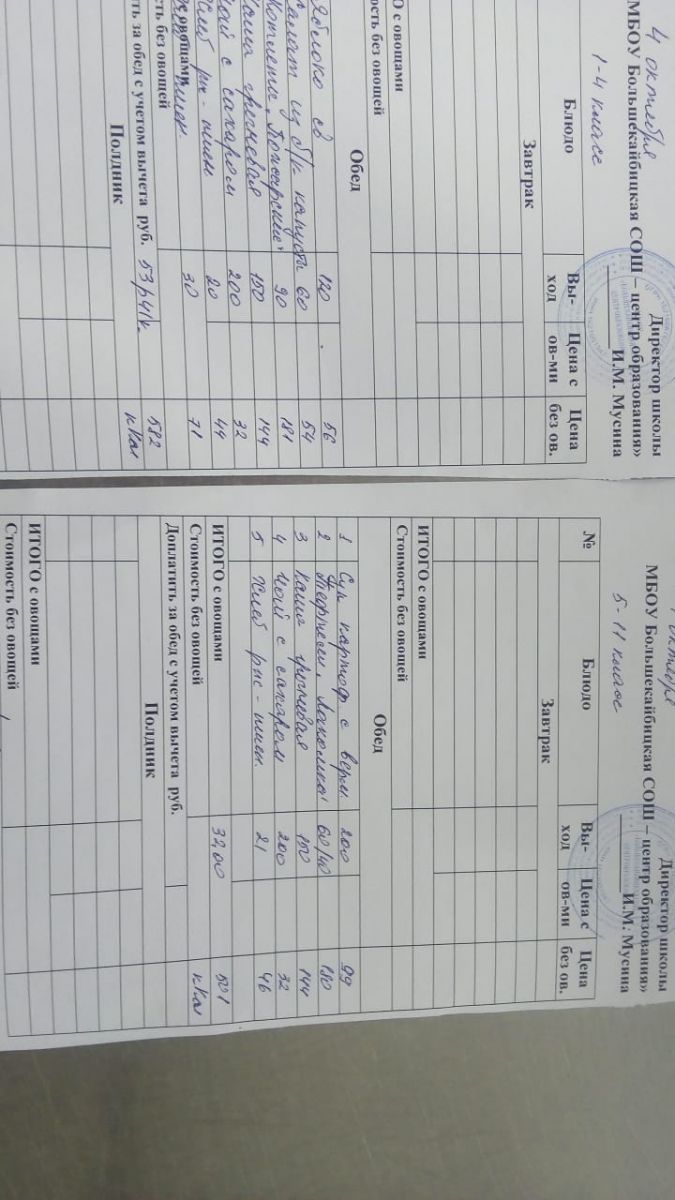 Директор школы
МБОУ Большекайбицкая СОШ – центр образования»
И.М. Мусина
4 октября
1-4 класс
Блюдо
Вы-
ход
Цена с
ов-ми
Цена
без ов.
Завтрак
О с овощами
Стоимость без овощей
Обед
Яблоко св 120 56
Салат из б/к капусты 60 54
Котлеты 90 181
Каша гречневая 150 144
Чай с сахаром 200 32
Хлеб рж-пшен 20 44
пшен. 30 71
с овощами
сть без овощей 582
ть за обед с учетом вычета руб. 53р41к. кКал
Полдник
Директор школы
МБОУ Большекайбицкая СОШ – центр образования»
И.М. Мусина
октября
5-11 класс
№
Блюдо
Вы-
ход
Цена с
ов-ми
Цена
без ов.
Завтрак
ИТОГО с овощами
Стоимость без овощей
Обед
1 Суп картоф с верм 200 99
2 Тефтели 60/40 180
3 Каша гречневая 150 144
4 Чай с сахаром 200 32
5 Хлеб рж-пшен. 21 46
ИТОГО с овощами 32,00 501
Стоимость без овощей кКал
Доплатить за обед с учетом вычета руб.
Полдник
ИТОГО с овощами
Стоимость без овощей